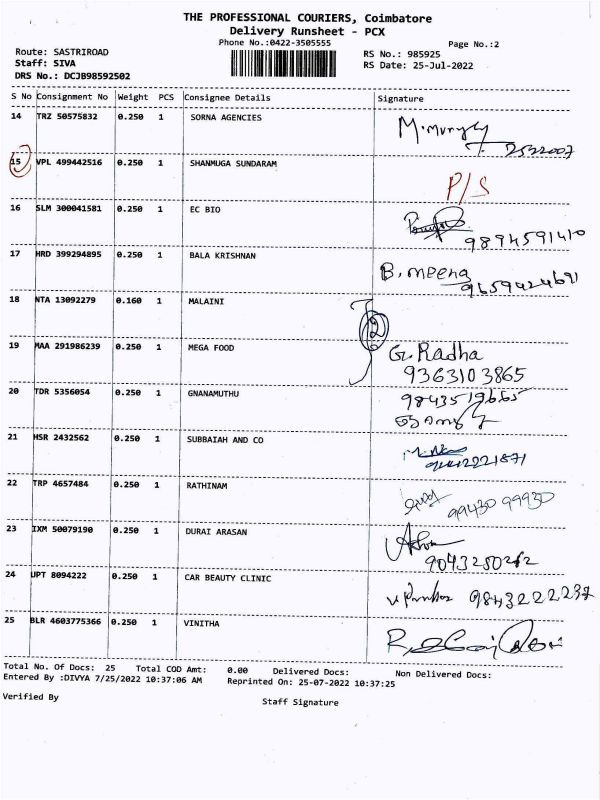 THE PROFESSIONAL COURIERS, Coimbatore
Delivery Runsheet - PCX
Phone No.:0422-3505555
Page No.:2
Route: SASTRIROAD
RS No.: 985925
Staff: SIVA
RS Date: 25-Jul-2022
DRS No.: DCJB98592502
S No Consignment No Weight PCS Consignee Details Signature
14 TRZ 50575832 0.250 1 SORNA AGENCIES
15 VPL 499442516 0.250 1 SHANMUGA SUNDARAM P/S
16 SLM 300041581 0.250 1 EC BIO
9894591410
17 HRD 399294895 0.250 1 BALA KRISHNAN B. meena
9659424691
18 NTA 13092279 0.160 1 MALAINI 2
19 MAA 291986239 0.250 1 MEGA FOOD G. Radha
9363103865
20 TDR 5356054 0.250 1 GNANAMUTHU
21 HSR 2432562 0.250 1 SUBBAIAH AND CO
22 TRP 4657484 0.250 1 RATHINAM
99430 99930
23 IXM 50079190 0.250 1 DURAI ARASAN
24 UPT 8094222 0.250 1 CAR BEAUTY CLINIC
25 BLR 4603775366 0.250 1 VINITHA
Total No. Of Docs: 25 Total COD Amt: 0.00 Delivered Docs: Non Delivered Docs:
Entered By :DIVYA 7/25/2022 10:37:06 AM Reprinted On: 25-07-2022 10:37:25
Verified By
Staff Signature